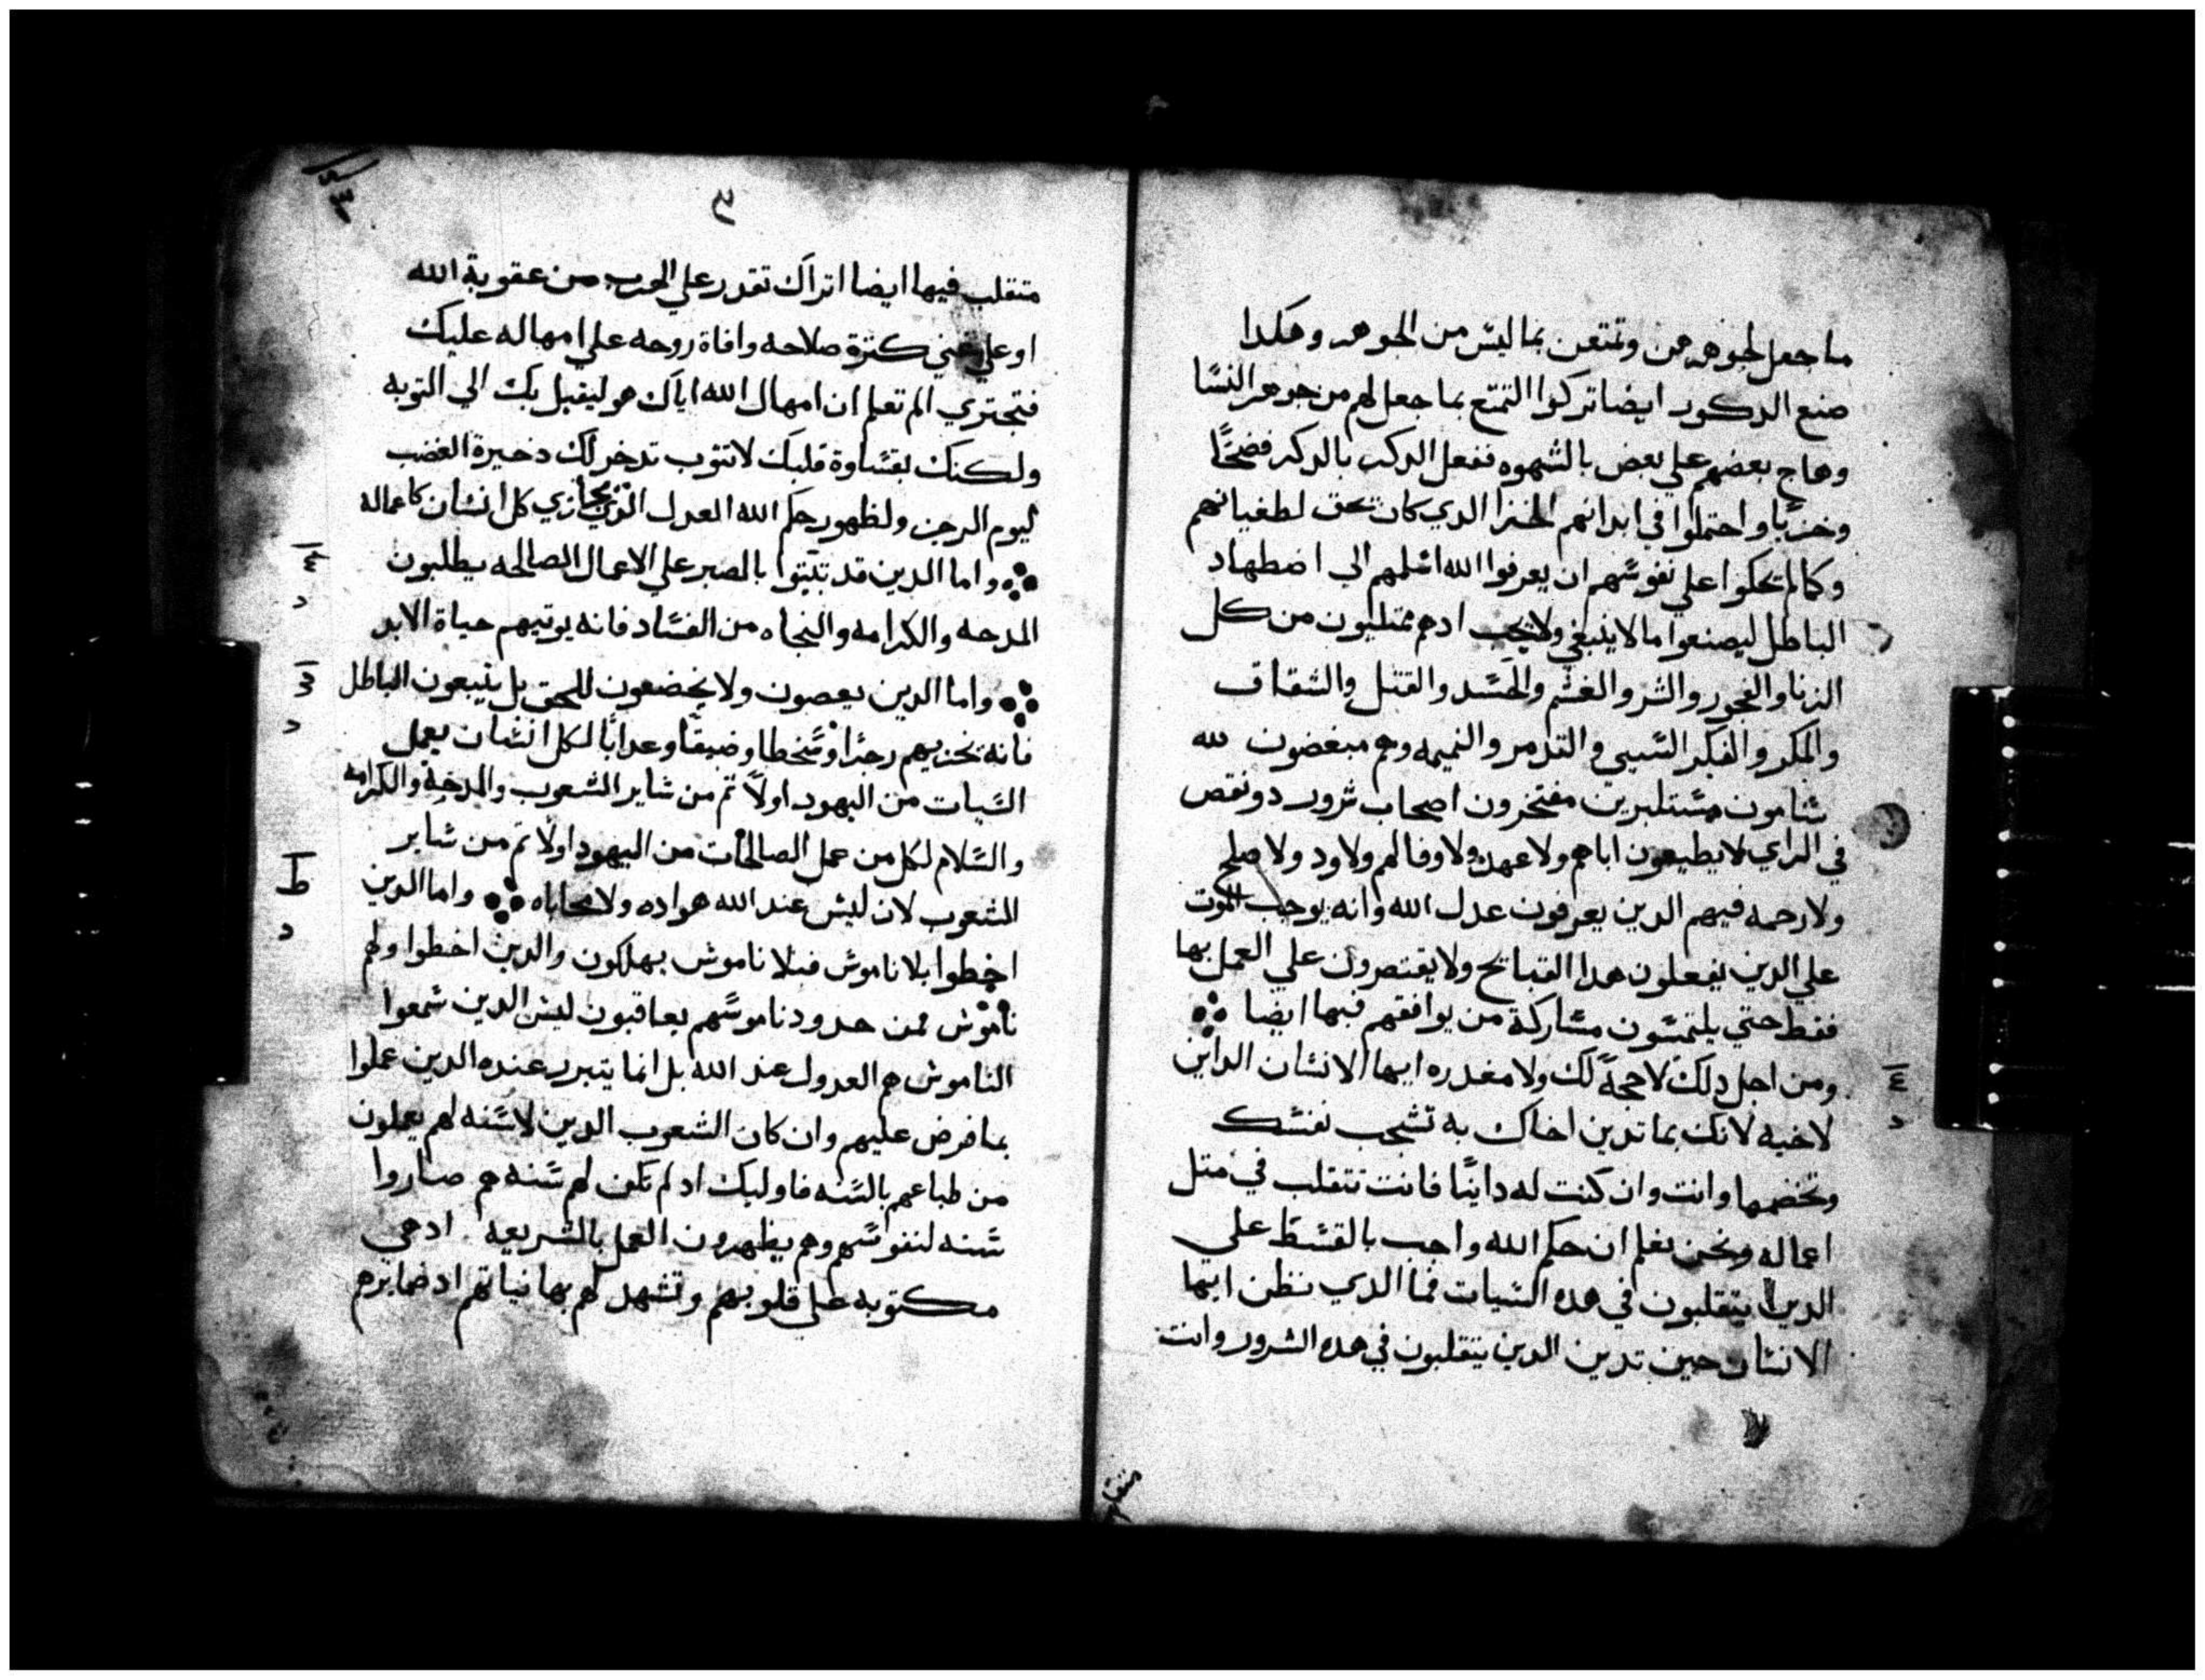 ما جعل لجوهرهن وتمتعن بما ليس من الجوهر وهكدا
صنع الدكور ايضا تركوا التمتع بما جعل لهم من جوهر النسا
وهاج بعضهم علي بعض بالشهوه ففعل الدكر بالدكر فضحًا
وخزيًا واحتملوا في ابدانهم الجزا الدي كان يحق لطغيانهم
وكما لم يحكوا علي نفوسهم ان يعرفوا الله اسلمهم الي اضطهاد
الباطل ليصنعوا ما لا ينبغي ولا يجب ادهم ممتليون من كل
الزنا والفجور والشر والغشم والحسد والقتل والشقاف
والمكر والفكر السيي والتدمر والنميمه وهم مبغضون لله
شتامون مستكبرين مفتخرون اصحاب شرور دو نقص
في الراي لا يطيعون اباهم ولا عهد ولا وفا لهم ولا ود ولا صلح
ولا رحمه فيهم الدين يعرفون عدل الله وانه يوجب الموت
علي الدين يفعلون هدا القبايح ولا يقتصرون علي العمل بها
فقط حتي يلتمسون مشاركة من يوافقهم فيها ايضا
ومن اجل دلك لا حجة لك ولا معدره ايها الانسان الداين
لاخيه لانك بما تدين اخاك به تشجب نفسك
وتخصمها وانت وان كنت له داينًا فانت تتقلب في متل
اعماله ونحن نعلم ان حكم الله واجب بالقسط علي
الدين يتقلبون في هده السيات فما الدي تظن ايها
الانسان حين تدين الدين يتقلبون في هده الشرور وانت
متقلب فيها ايضا اتراك تقدر علي الهرب من عقوبة الله
او علي غني كترة صلاحه وافاة روحه علي امهاله عليك
فتجتري الم تعلم ان امهال الله اياك هو ليقبل بك الي التوبه
ولكنك بقساوة قلبك لا تتوب تدخر لك دخيرة الغضب
ليوم الرجز ولظهور حكم الله العدل الدي يجازي كل انسان كاعماله
واما الدين قد تبتوا بالصبر علي الاعمال الصالحه يطلبون
المدحه والكرامه والنجاه من الفساد فانه يوتيهم حياة الابد
واما الدين يعصون ولا يخضعون للحق بل يتبعون الباطل
فانه يجزيهم رجزًا وسخطا وضيقًا وعدابًا لكل انسان يعمل
السيات من اليهود اولاً تم من ساير الشعوب والمدحة والكرامه
والسلام لكل من عمل الصالحات من اليهود اولاً تم من ساير
الشعوب لان ليس عند الله هواده ولا محاباه واما الدين
اخطوا بلا ناموس فبلا ناموس يهلكون والدين اخطوا ولهم
ناموس فمن حدود ناموسهم يعاقبون ليس الدين سمعوا
الناموس هم العدول عند الله بل انما يتبرر عنده الدين عملوا
بما فرض عليهم وان كان الشعوب الدين لا سنه لهم يعملون
من طباعهم بالسنه فاوليك اد لم تكن لهم سنه هم صاروا
سنه لنفوسهم وهم يظهرون العمل بالشريعه اد هي
مكتوبه علي قلوبهم وتشهد لهم بها نياتهم اد ضمايرهم